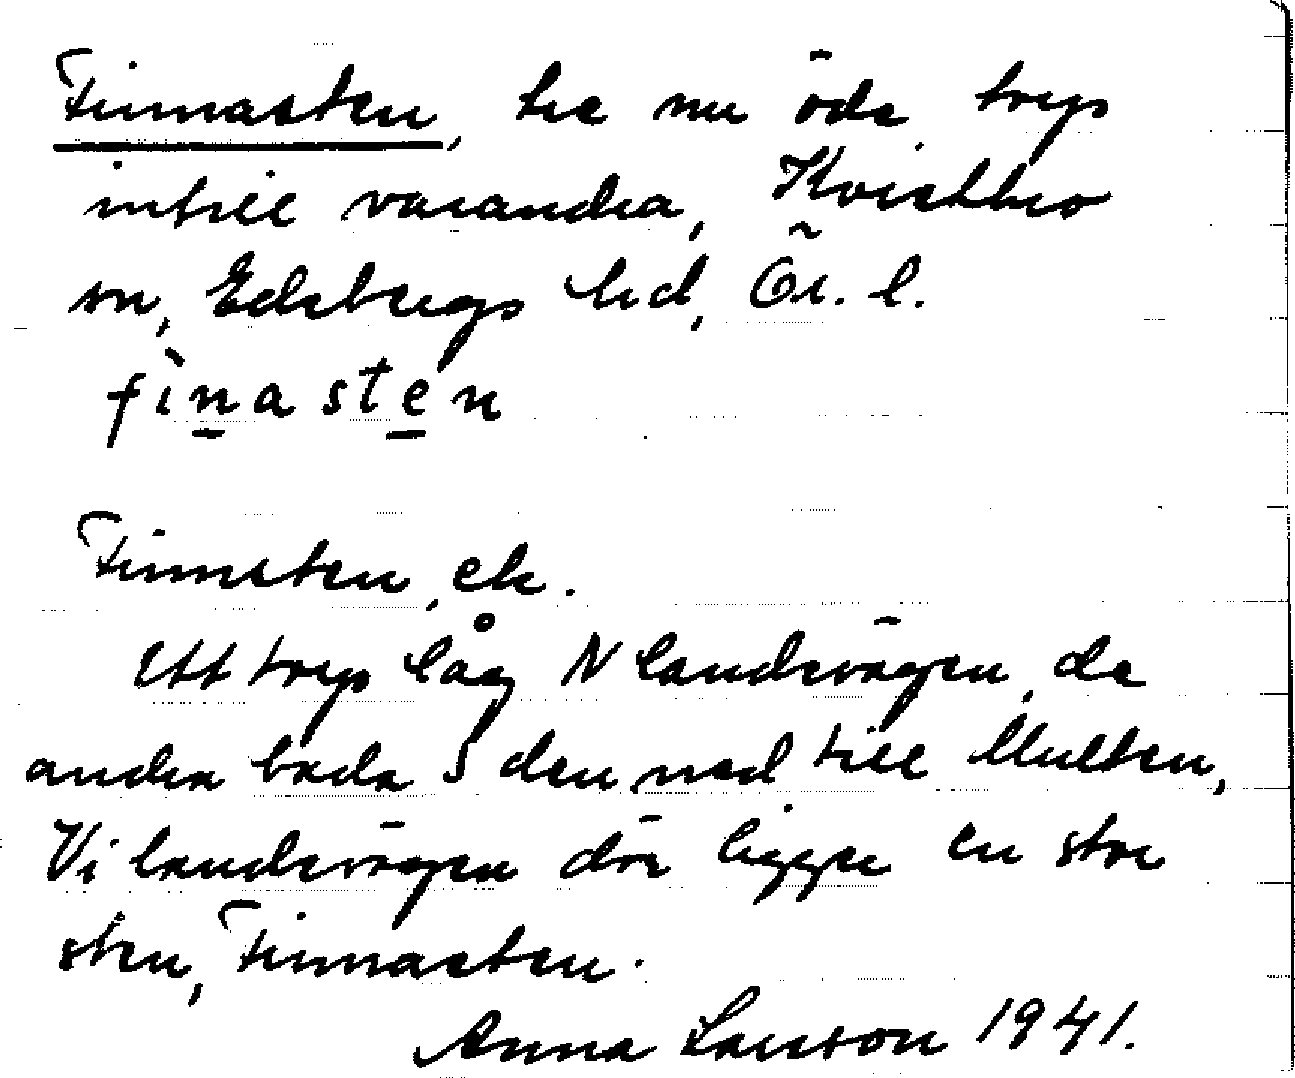 Finnasten, tre nu öde torp
intill varandra, Kvistbro
sn, Edsbergs hd, Ör. l.
fìnasten
Finnsten, ek.
Ett torp låg N landsvägen, de
andra båda S den ned till Multen,
Vi landsvägen där ligger en stor
sten, Finnasten.
Anna Larsson 1941.